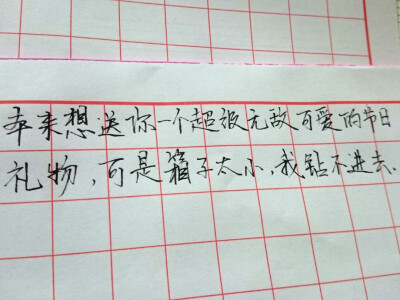 本来想送你一个超级无敌可爱的节日
礼物,可是箱子太小,我钻不进去.